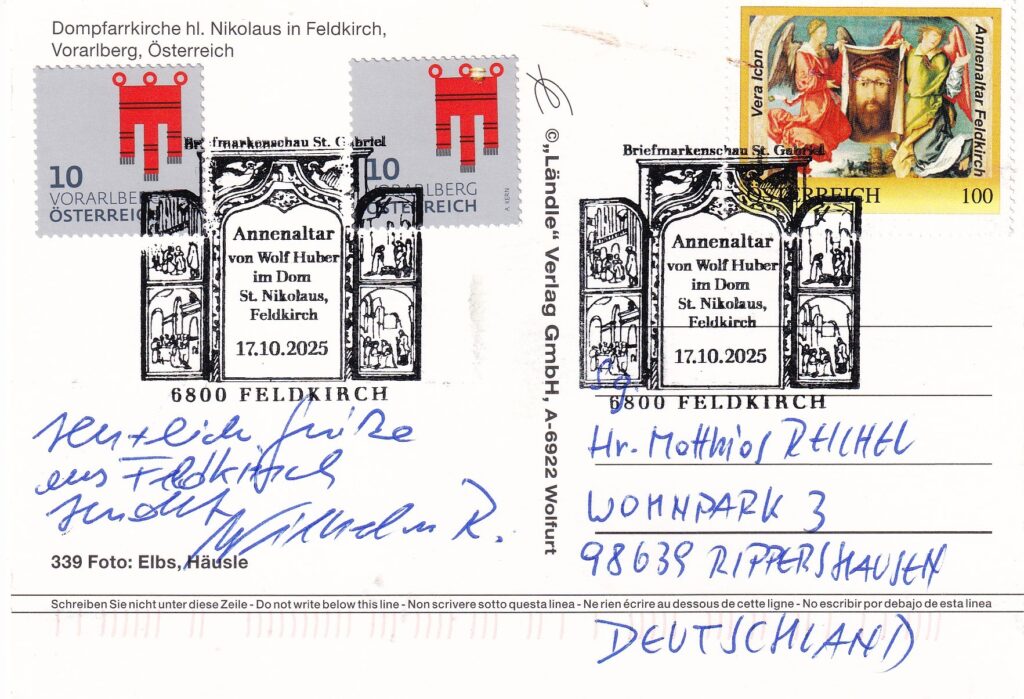 Dompfarrkirche hl. Nikolaus in Feldkirch,
Vorarlberg, Österreich
10
VORARLBERG
ÖSTERREICH
10
VORARLBERG
ÖSTERREICH
A. KERN
Briefmarkenschau St. Gabriel
Annenaltar
von Wolf Huber
im Dom
St. Nikolaus,
Feldkirch
17.10.2025
6800 FELDKIRCH
Herzlich Grüße
aus Feldkirch
sendet Wilhelm R.
339 Foto: Elbs, Häusle
©„Ländle“ Verlag GmbH, A-6922 Wolfurt
Vera Icon
Annenaltar Feldkirch
ÖSTERREICH
100
Briefmarkenschau St. Gabriel
Annenaltar
von Wolf Huber
im Dom
St. Nikolaus,
Feldkirch
17.10.2025
6800 FELDKIRCH
Sg.
Hr. Matthias REICHEL
WOHNPARK 3
98639 RIPPERSHAUSEN
DEUTSCHLAND
Schreiben Sie nicht unter diese Zeile - Do not write below this line - Non scrivere sotto questa linea - Ne rien écrire au dessous de cette ligne - No escribir por debajo de esta linea